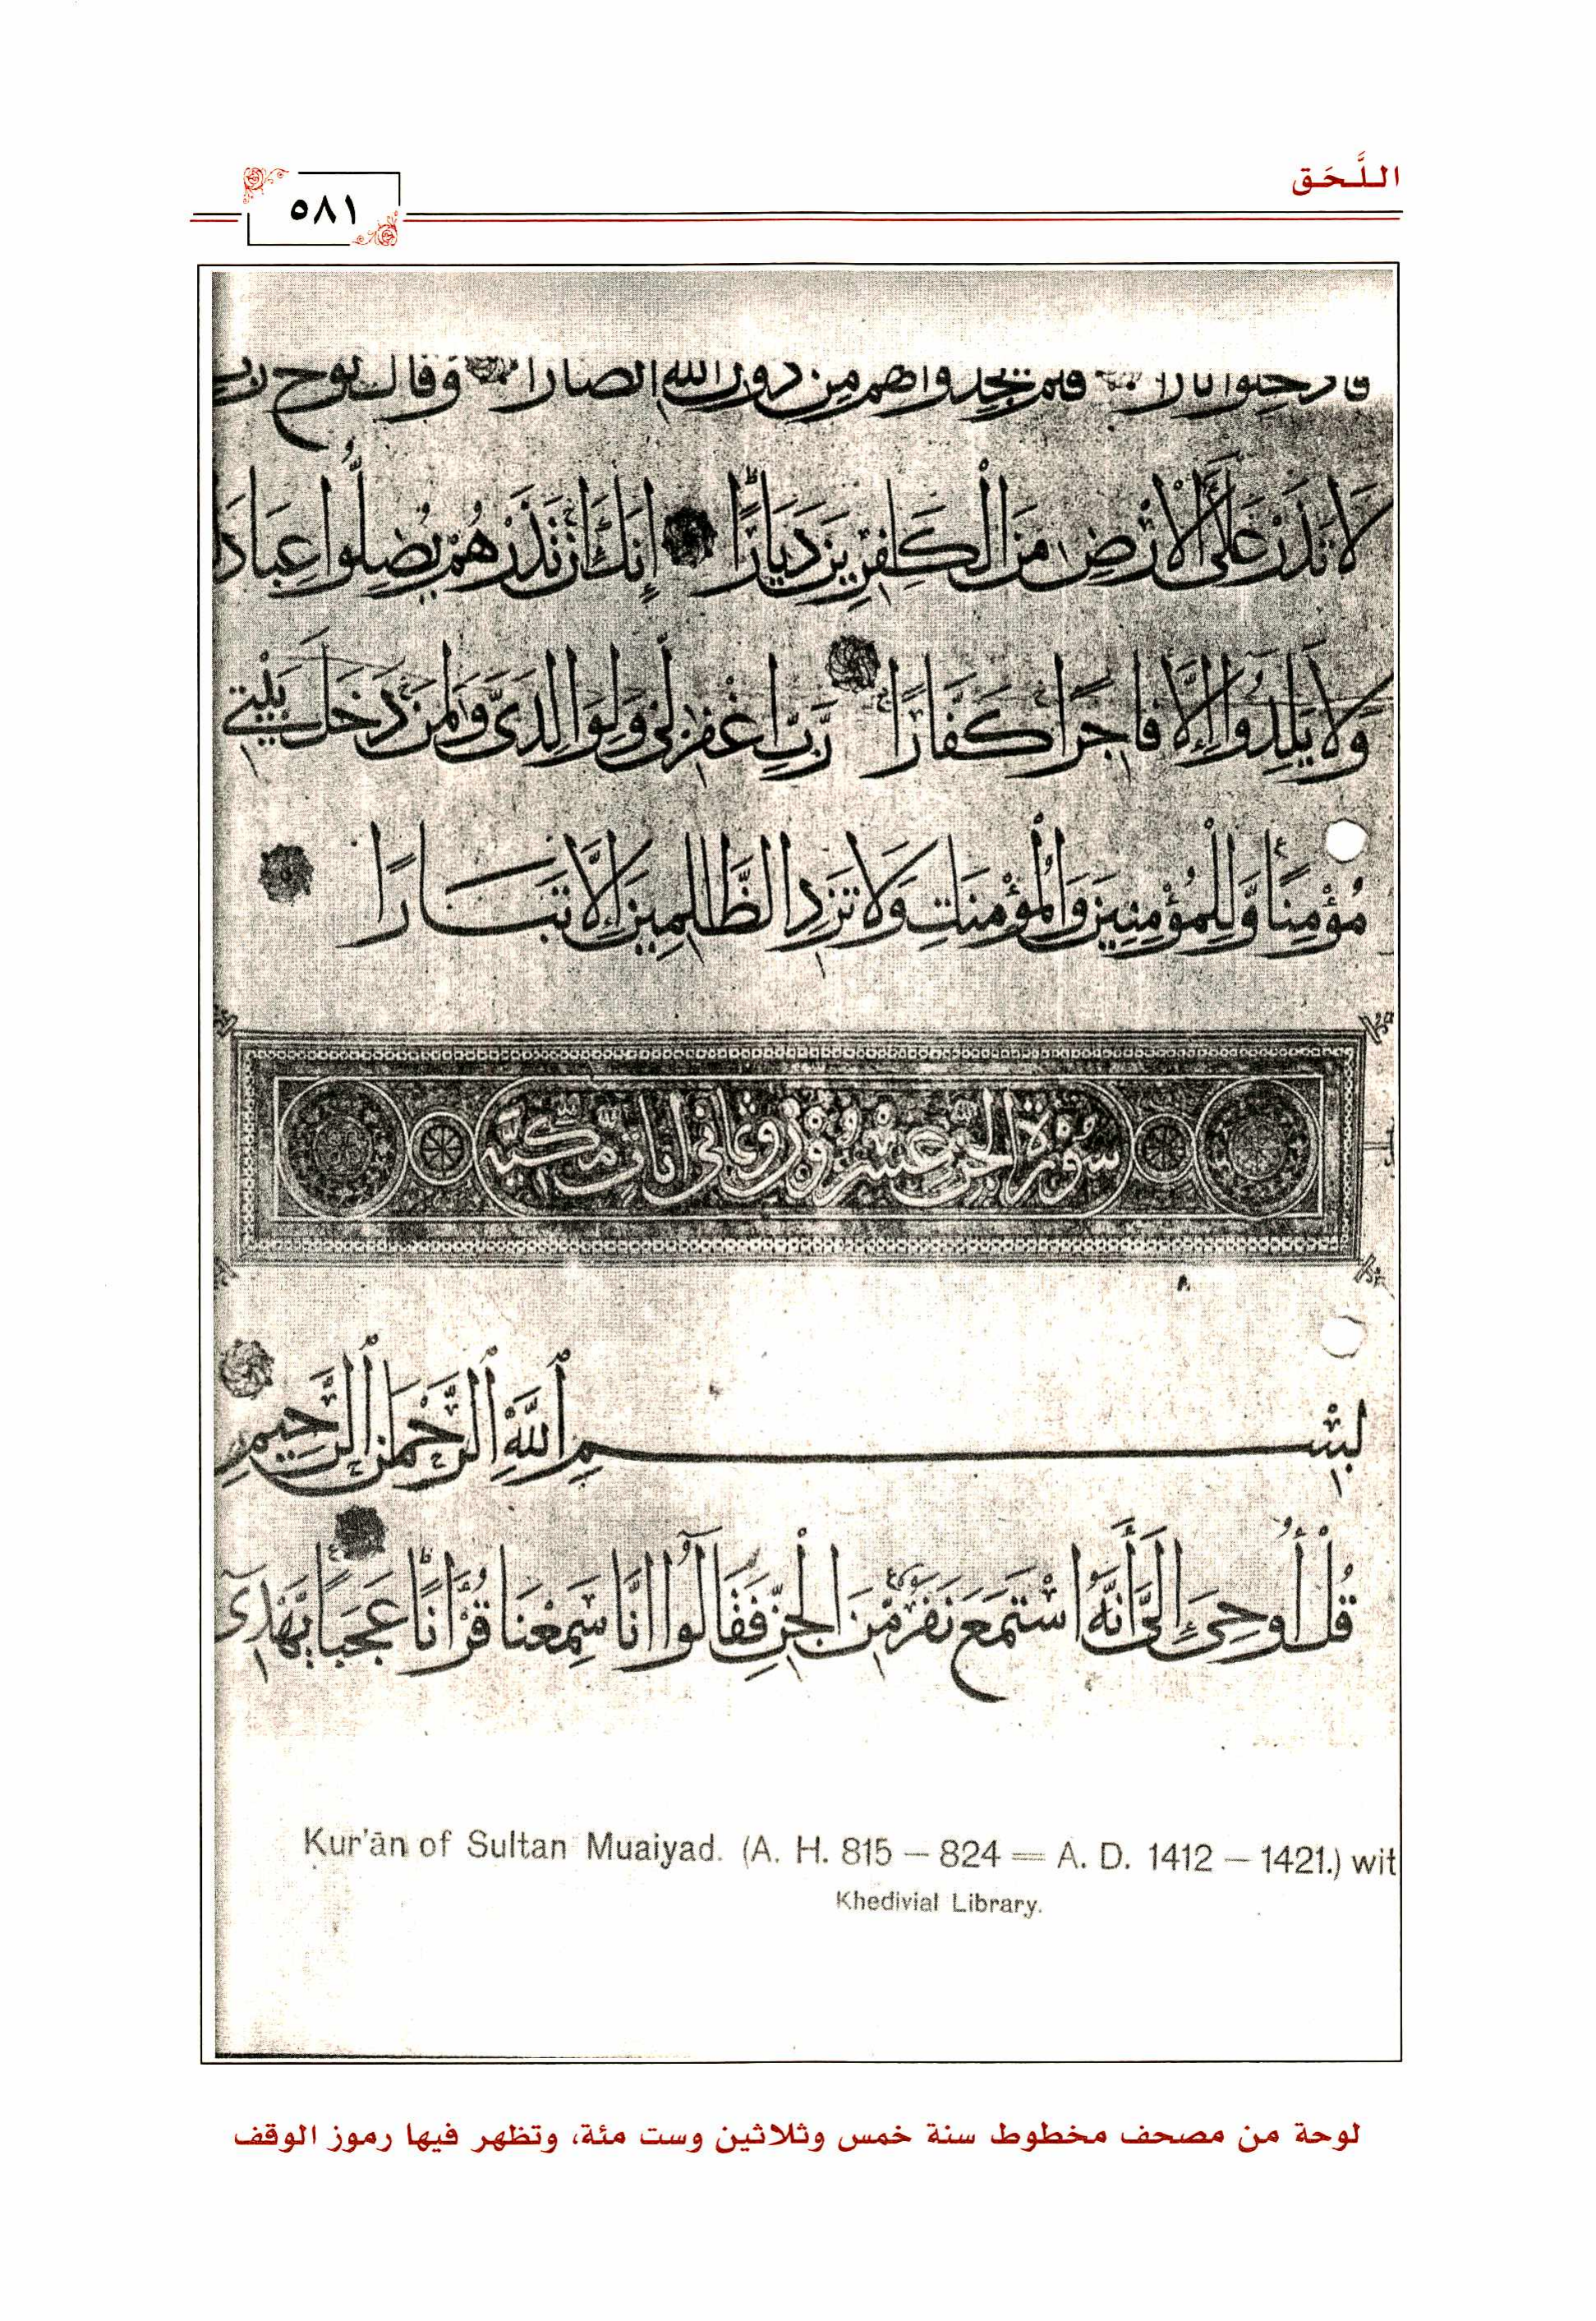 اللَّحَق
٥٨١
فادخلوا نارا فلم يجدوا لهم من دون الله انصارا وقال نوح رب
لَا تَذَرْ عَلَى الْاَرْضِ مِنَ الْكَفِرِينَ دَيَّارًا اِنَّكَ اِنْ تَذَرْهُمْ يُضِلُّوا عِبَادَ
وَلَا يَلِدُوا اِلَّا فَاجِرًا كَفَّارًا رَبِّ اغْفِرْ لِي وَلِوَالِدَيَّ وَلِمَنْ دَخَلَ بَيْتِي
مُؤْمِنًا وَّلِلْمُؤْمِنِينَ وَالْمُؤْمِنَاتِ وَلَا تَزِدِ الظَّالِمِينَ اِلَّا تَبَارًا
سُورَةُ الْجِنِّ عِشْرُونَ وَثَمَانِي اٰيَاتٍ مَّكِّيَّة
بِسْمِ اللَّهِ الرَّحْمَنِ الرَّحِيمِ
قُلْ أُوحِيَ إِلَيَّ أَنَّهُ اسْتَمَعَ نَفَرٌ مِّنَ الْجِنِّ فَقَالُوا اِنَّا سَمِعْنَا قُرْاٰنًا عَجَبًا يَّهْدِي
Kur'ān of Sultan Muaiyad. (A. H. 815 – 824 = A. D. 1412 – 1421.) wit
Khedivial Library.
لوحة من مصحف مخطوط سنة خمس وثلاثين وست مئة، وتظهر فيها رموز الوقف